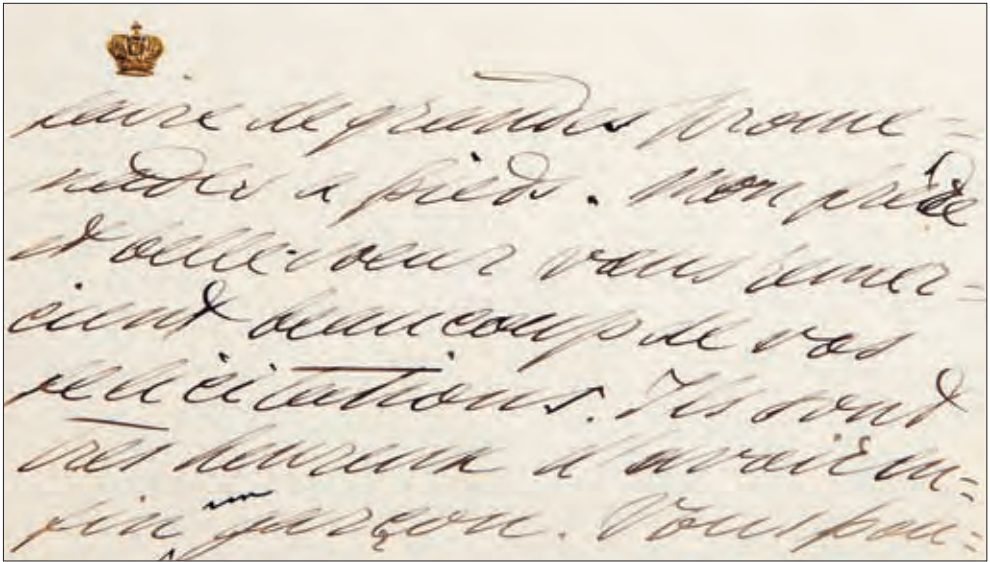 faire de grandes prome=
nades a pieds. Mon frère
et belle-soeur vous remer=
cient beaucoup de vos
felicitations. Ils sont
tres heureux d'avoir en=
fin un garçon. Vous pou=